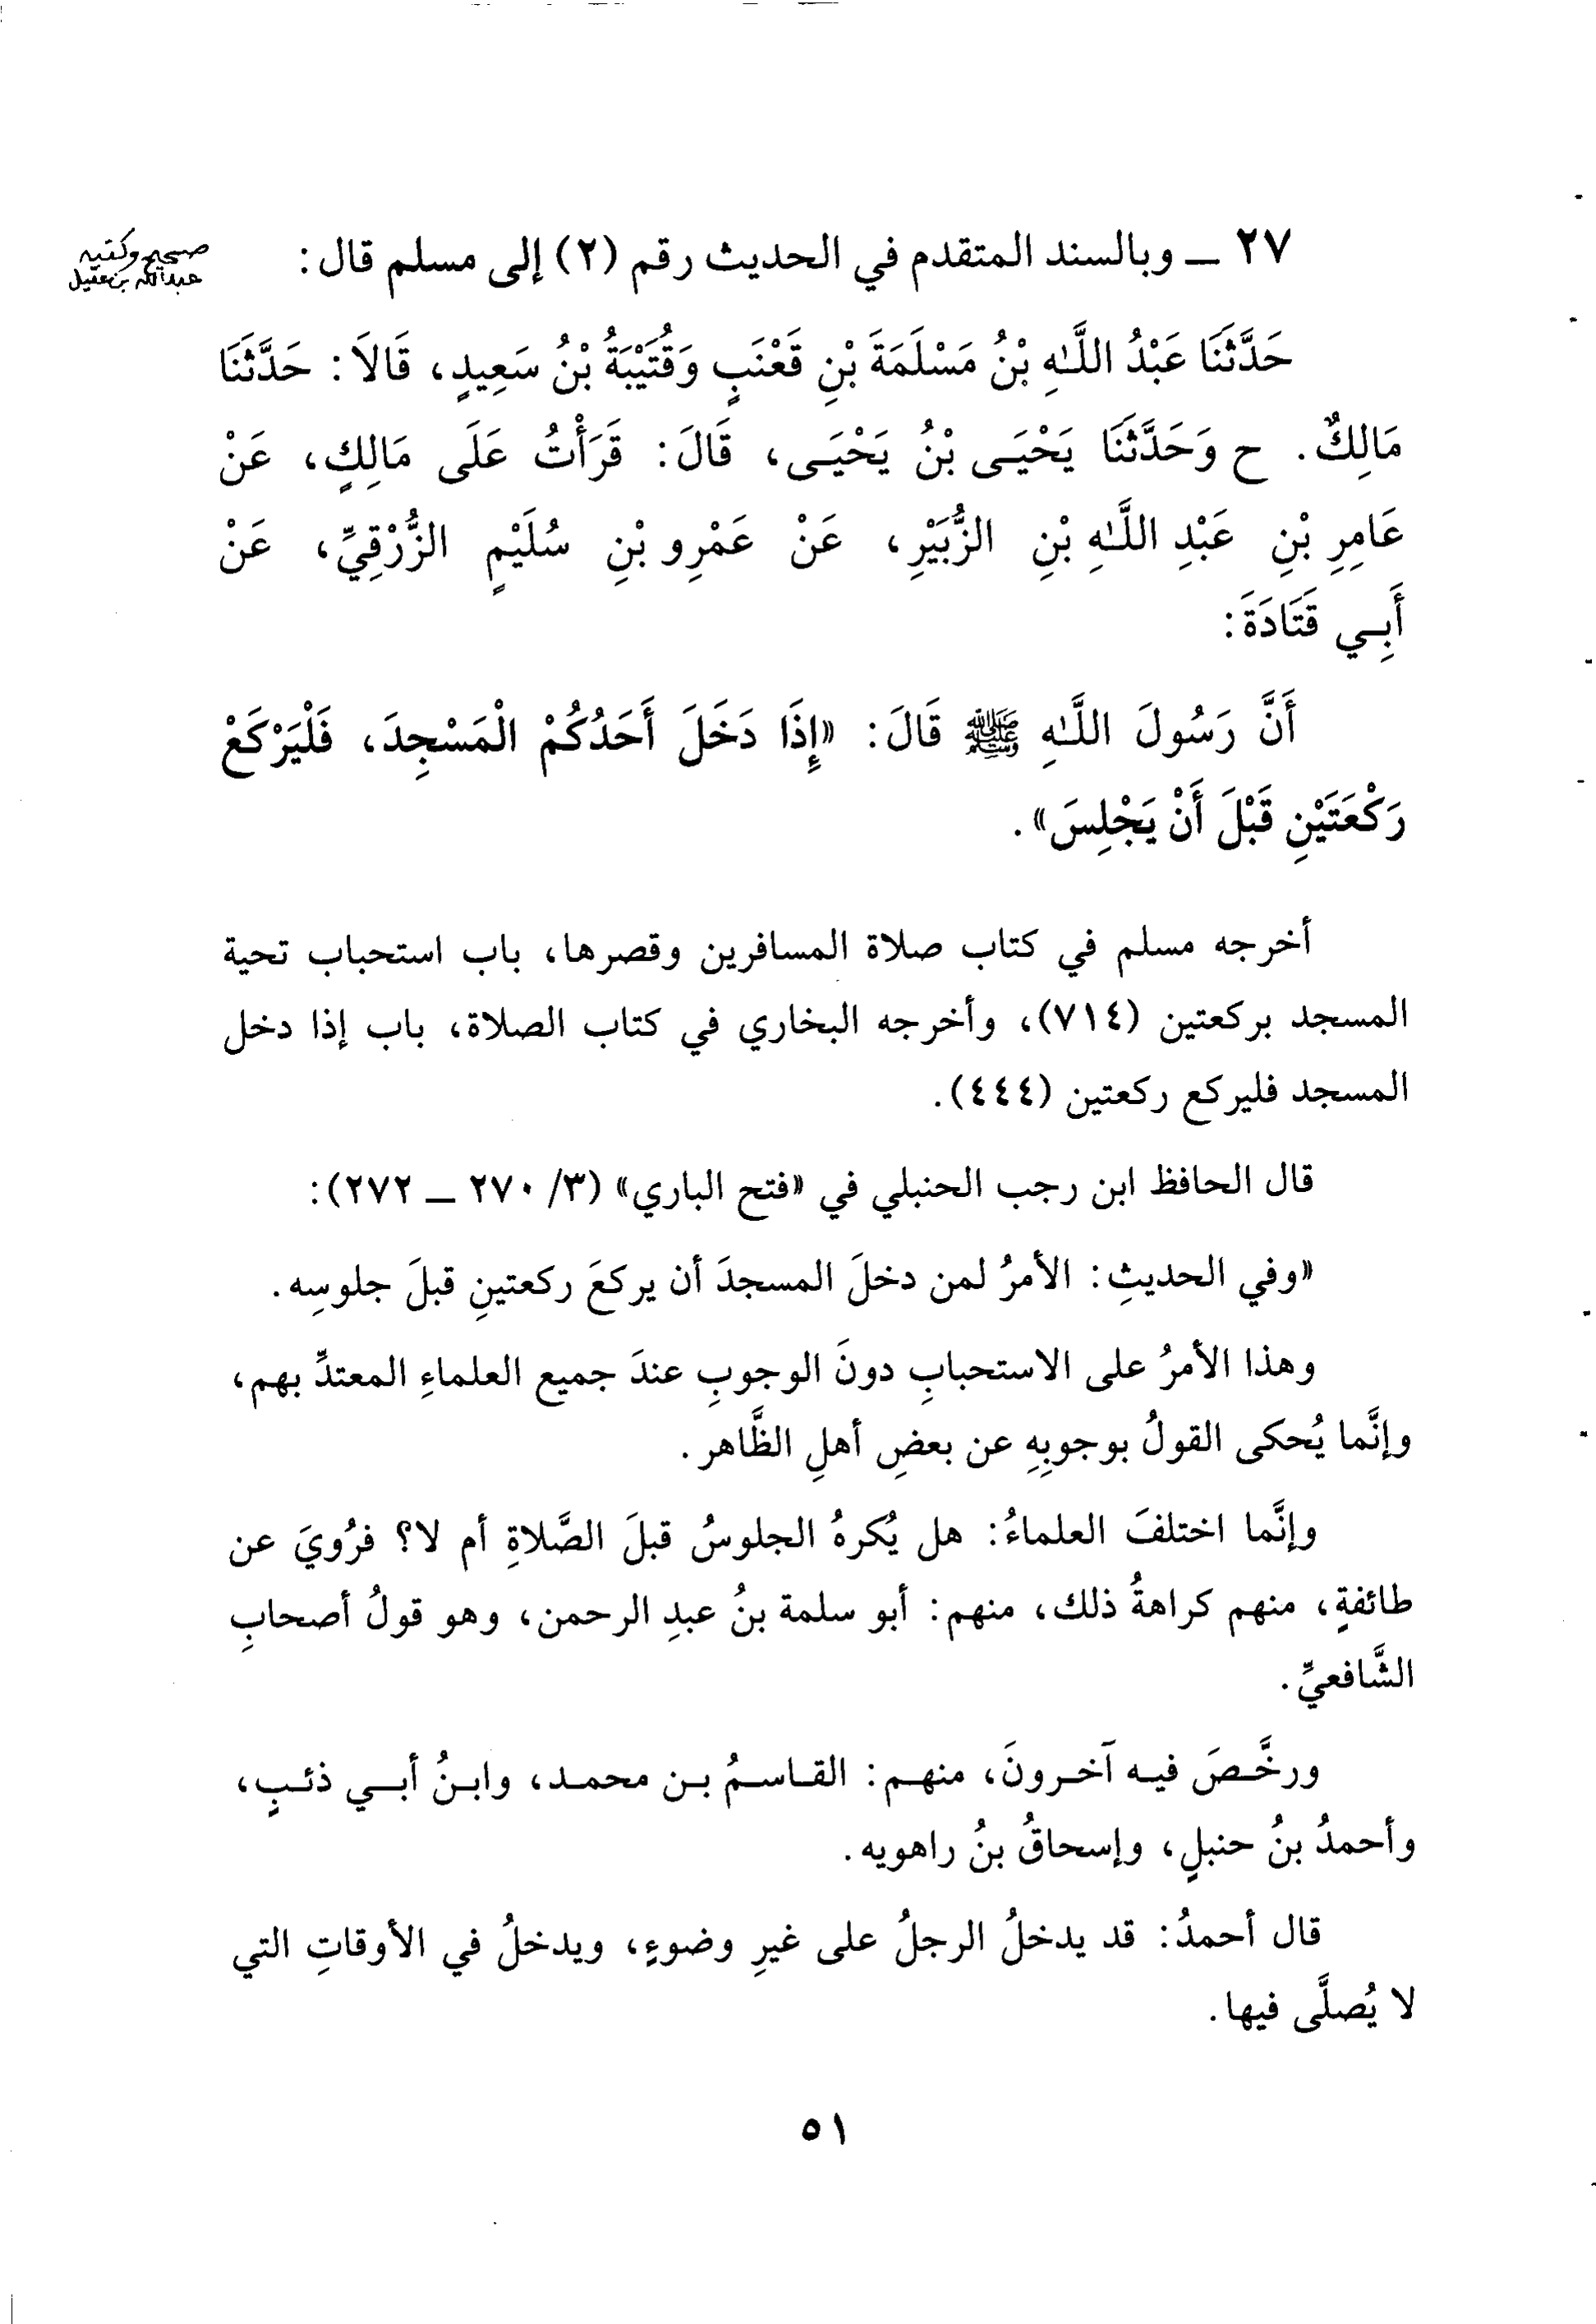 ٢٧ ــ وبالسند المتقدم في الحديث رقم (٢) إلى مسلم قال:
صحيح وكتبه
عبدالله بن عقيل
حَدَّثَنَا عَبْدُ اللَّـٰهِ بْنُ مَسْلَمَةَ بْنِ قَعْنَبٍ وَقُتَيْبَةُ بْنُ سَعِيدٍ، قَالَا: حَدَّثَنَا
مَالِكٌ. ح وَحَدَّثَنَا يَحْيَـى بْنُ يَحْيَـى، قَالَ: قَرَأْتُ عَلَى مَالِكٍ، عَنْ
عَامِرِ بْنِ عَبْدِ اللَّـٰهِ بْنِ الزُّبَيْرِ، عَنْ عَمْرِو بْنِ سُلَيْمٍ الزُّرْقِيِّ، عَنْ
أَبِـي قَتَادَةَ:
أَنَّ رَسُولَ اللَّـٰهِ ﷺ قَالَ: «إِذَا دَخَلَ أَحَدُكُمْ الْمَسْجِدَ، فَلْيَرْكَعْ
رَكْعَتَيْنِ قَبْلَ أَنْ يَجْلِسَ».
أخرجه مسلم في كتاب صلاة المسافرين وقصرها، باب استحباب تحية
المسجد بركعتين (٧١٤)، وأخرجه البخاري في كتاب الصلاة، باب إذا دخل
المسجد فليركع ركعتين (٤٤٤).
قال الحافظ ابن رجب الحنبلي في «فتح الباري» (٣/ ٢٧٠ ــ ٢٧٢):
«وفي الحديثِ: الأمرُ لمن دخلَ المسجدَ أن يركعَ ركعتينِ قبلَ جلوسِه.
وهذا الأمرُ على الاستحبابِ دونَ الوجوبِ عندَ جميع العلماءِ المعتدِّ بهم،
وإنَّما يُحكى القولُ بوجوبِهِ عن بعضِ أهلِ الظَّاهر.
وإنَّما اختلفَ العلماءُ: هل يُكرهُ الجلوسُ قبلَ الصَّلاةِ أم لا؟ فرُويَ عن
طائفةٍ، منهم كراهةُ ذلك، منهم: أبو سلمة بنُ عبدِ الرحمن، وهو قولُ أصحابِ
الشَّافعيِّ.
ورخَّـصَ فيـه آخـرونَ، منهـم: القـاسـمُ بـن محمـد، وابـنُ أبـي ذئـبٍ،
وأحمدُ بنُ حنبلٍ، وإسحاقُ بنُ راهويه.
قال أحمدُ: قد يدخلُ الرجلُ على غيرِ وضوءٍ، ويدخلُ في الأوقاتِ التي
لا يُصلَّى فيها.
٥١